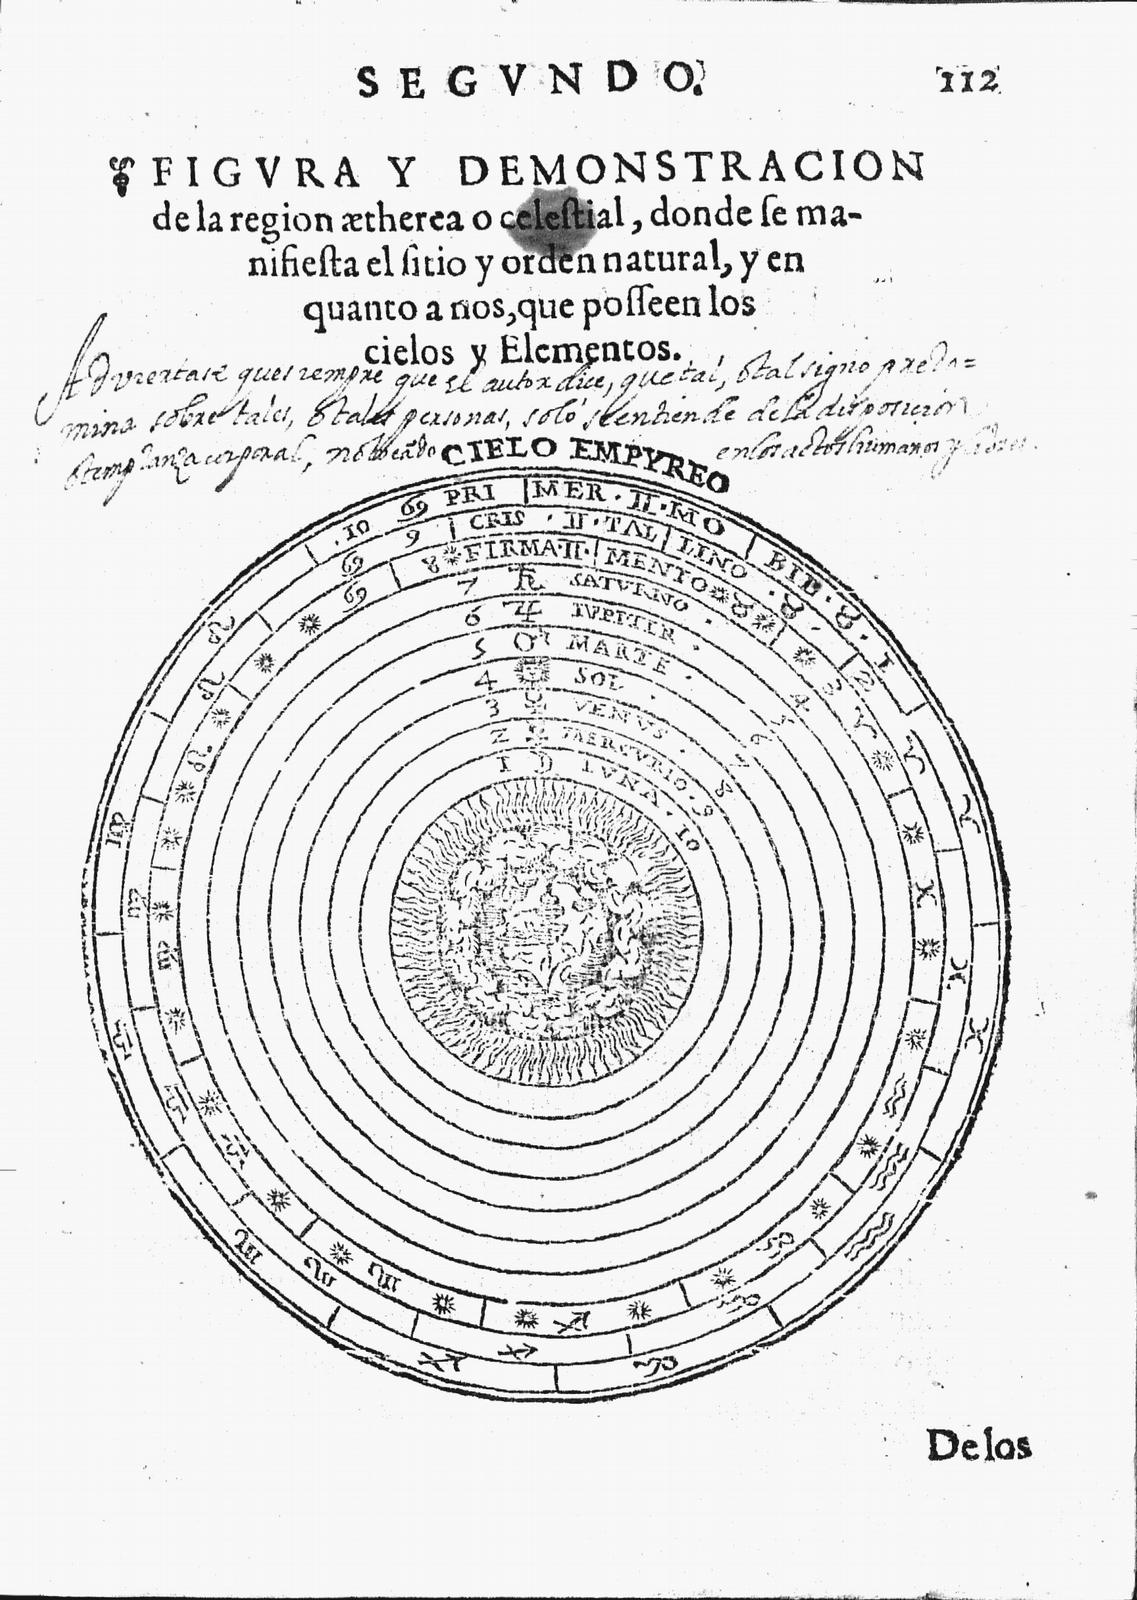 SEGVNDO.
112
FIGVRA Y DEMONSTRACION
de la region ætherea o celeſtial, donde ſe ma-
nifieſta el ſitio y orden natural, y en
quanto a nos, que poſſeen los
cielos y Elementos.
Adviertase que siempre que el autor dice, que tal, o tal signo predo=
mina sobre tales, o tales personas, solo se entiende de la disposicion
o templanza corporal, no en los actos humanos y libres.
CIELO EMPYREO
10 ♋ PRI MER · II · MO BIL · ♉ · 1
♋ 9 CRIS · II · TAL LINO · ♉ · 2
♋ 8 FIRMA · II · MENTO ♉ 3
7 ♄ SATVRNO · 4
6 ♃ IVPITER · 5
5 ♂ MARTE · 6
4 SOL · 7
3 ♀ VENVS · 8
2 ☿ MERCVRIO · 9
1 ☽ LVNA · 10
♈ ♈ ♈
♓ ♓ ♓
♒ ♒ ♒
♑ ♑ ♑
♐ ♐ ♐
♏ ♏ ♏
♎ ♎ ♎
♍ ♍ ♍
♌ ♌ ♌
De los